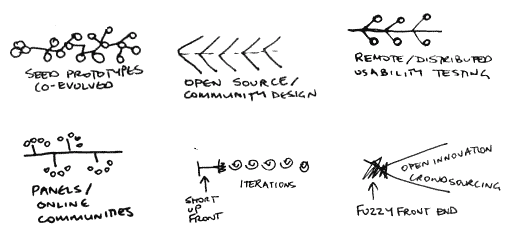 SEED PROTOTYPES
CO-EVOLVED
OPEN SOURCE/
COMMUNITY DESIGN
REMOTE/DISTRIBUTED
USABILITY TESTING
PANELS/
ONLINE
COMMUNITIES
SHORT
UP
FRONT
ITERATIONS
OPEN INNOVATION
CROWDSOURCING
FUZZY FRONT END